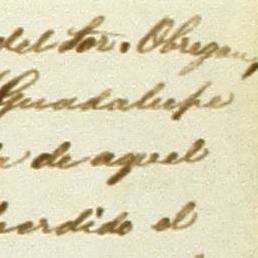 del Sor. Obregon,
Guadalupe
de aquel
perdido el